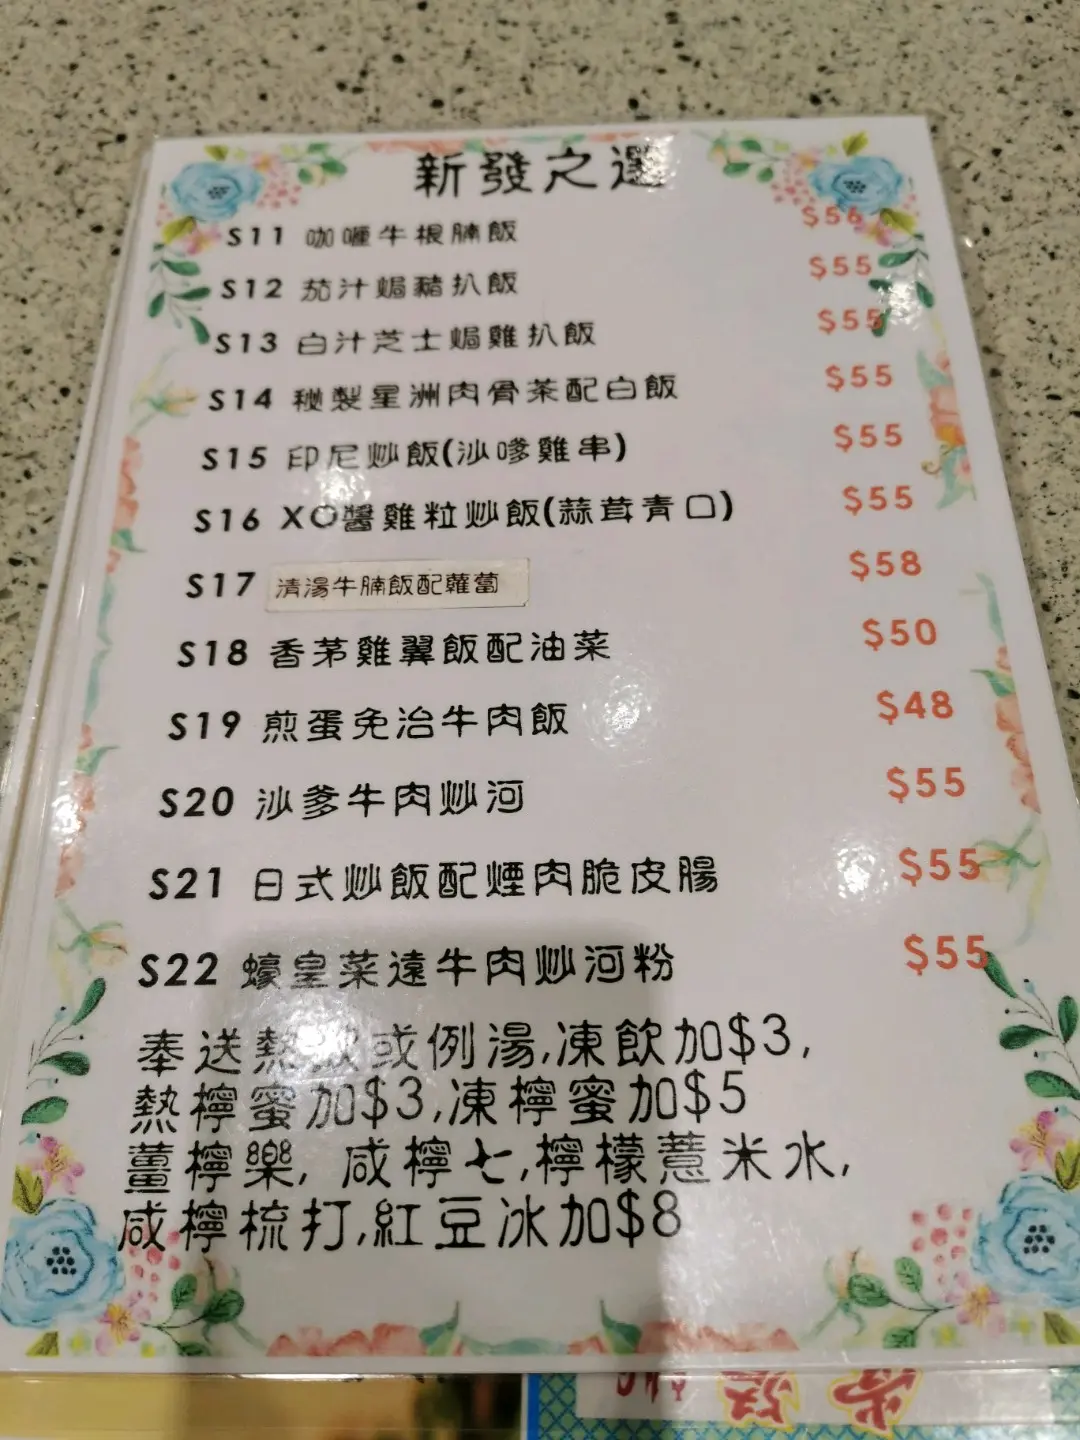 新發之選
S11 咖喱牛根腩飯 $56
S12 茄汁焗豬扒飯 $55
S13 白汁芝士焗雞扒飯 $55
S14 秘製星洲肉骨茶配白飯 $55
S15 印尼炒飯(沙嗲雞串) $55
S16 XO醬雞粒炒飯(蒜茸青口) $55
S17 清湯牛腩飯配蘿蔔 $58
S18 香茅雞翼飯配油菜 $50
S19 煎蛋免治牛肉飯 $48
S20 沙爹牛肉炒河 $55
S21 日式炒飯配煙肉脆皮腸 $55
S22 蠔皇菜遠牛肉炒河粉 $55
奉送熱飲或例湯,凍飲加$3,
熱檸蜜加$3,凍檸蜜加$5
薑檸樂, 咸檸七,檸檬薏米水,
咸檸梳打,紅豆冰加$8